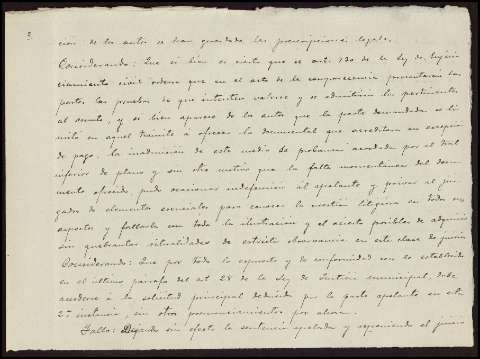 2.
ción de los autos se han guardado las prescripciones legales.
Considerando: Que si bien es cierto que el art. 730 de la Ley de Enjui
ciamiento civil ordena que en el acto de la comparecencia presentarán las
partes, las pruebas de que intenten valerse y se admitirán las pertinentes
al asunto, y si bien aparece de los autos que la parte demandada se li
mitó en aquel trámite a ofrecer la documental que acreditara su excepción
de pago, la inadmisión de este medio de probanza acordada por el Tribl
inferior de plano y sin otro motivo que la falta momentánea del docu
mento ofrecido, pudo ocasionar indefensión al apelante y privar al juz
gador de elementos esenciales para conocer la cuestión litigiosa en todos sus
aspectos y fallarla con toda la ilustración y el acierto posibles de adquirir
sin quebrantar ritualidades de estricta observancia en esta clase de juicios
Considerando: Que por todo lo expuesto y de conformidad con lo establecido
en el último párrafo del art 28 de la Ley de Justicia municipal, debe
accederse a la solicitud principal deducida por la parte apelante en esta
2ª instancia, sin otros pronunciamientos por ahora.
Fallo: Dejando sin efecto la sentencia apelada y reponiendo el juicio